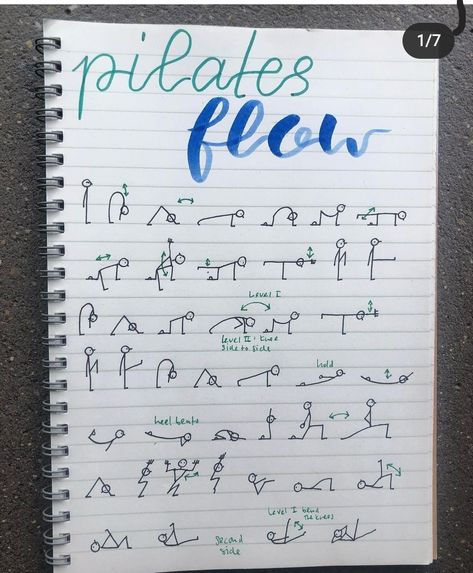 1/7
pilates
flow
Level I
Level II: knee
side to side
hold
heel beats
Level I bend
the knees
second
side